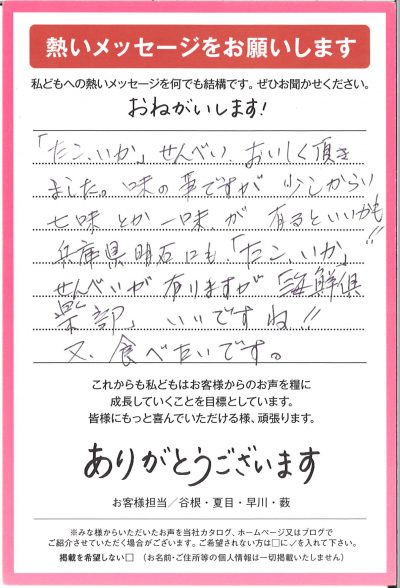 熱いメッセージをお願いします
私どもへの熱いメッセージを何でも結構です。ぜひお聞かせください。
おねがいします!
「たこ、いか」せんべい、おいしく頂き
ました。味の事ですが 少しからい
七味 とか 一味、が 有るといいかも!!
兵庫県明石にも、「たこ、いか」
せんべいが 有りますが 「海鮮倶
楽部」 いいですね!!
又、食べたいです。
これからも私どもはお客様からのお声を糧に
成長していくことを目標としています。
皆様にもっと喜んでいただける様、頑張ります。
ありがとうございます
お客様担当／谷根・夏目・早川・薮
※みな様からいただいたお声を当社カタログ、ホームページ又はブログで
ご紹介させていただく場合がございます。ご希望されない方は□に✓を入れて下さい。
掲載を希望しない□ （お名前・ご住所等の個人情報は一切掲載いたしません）